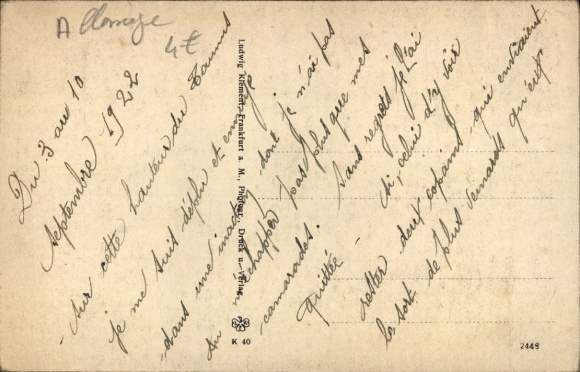 Allemagne
4€
Du 3 au 10
septembre 1922
Sur cette hauteur du Taunus
je me suis déplu et ennuyé
dans une inaction dont je n'ai pas
su m'échapper pas plus que mes
camarades. Sans regrets je l'ai
quittée - si, celui d'y voir
rester deux copains qui enviaient
le sort de plus veinards qu'eux
Ludwig Klement, Frankfurt a. M., Photogr., Druck u. Verlag
K 40
2449